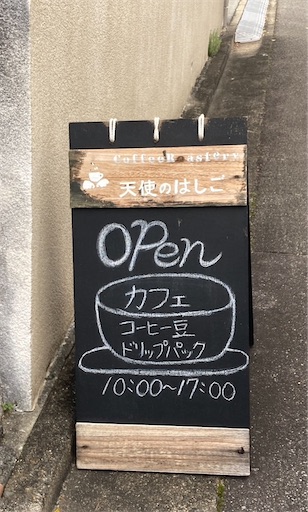 Coffee Roastery
天使のはしご
OPen
カフェ
コーヒー豆
ドリップパック
10:00~17:00